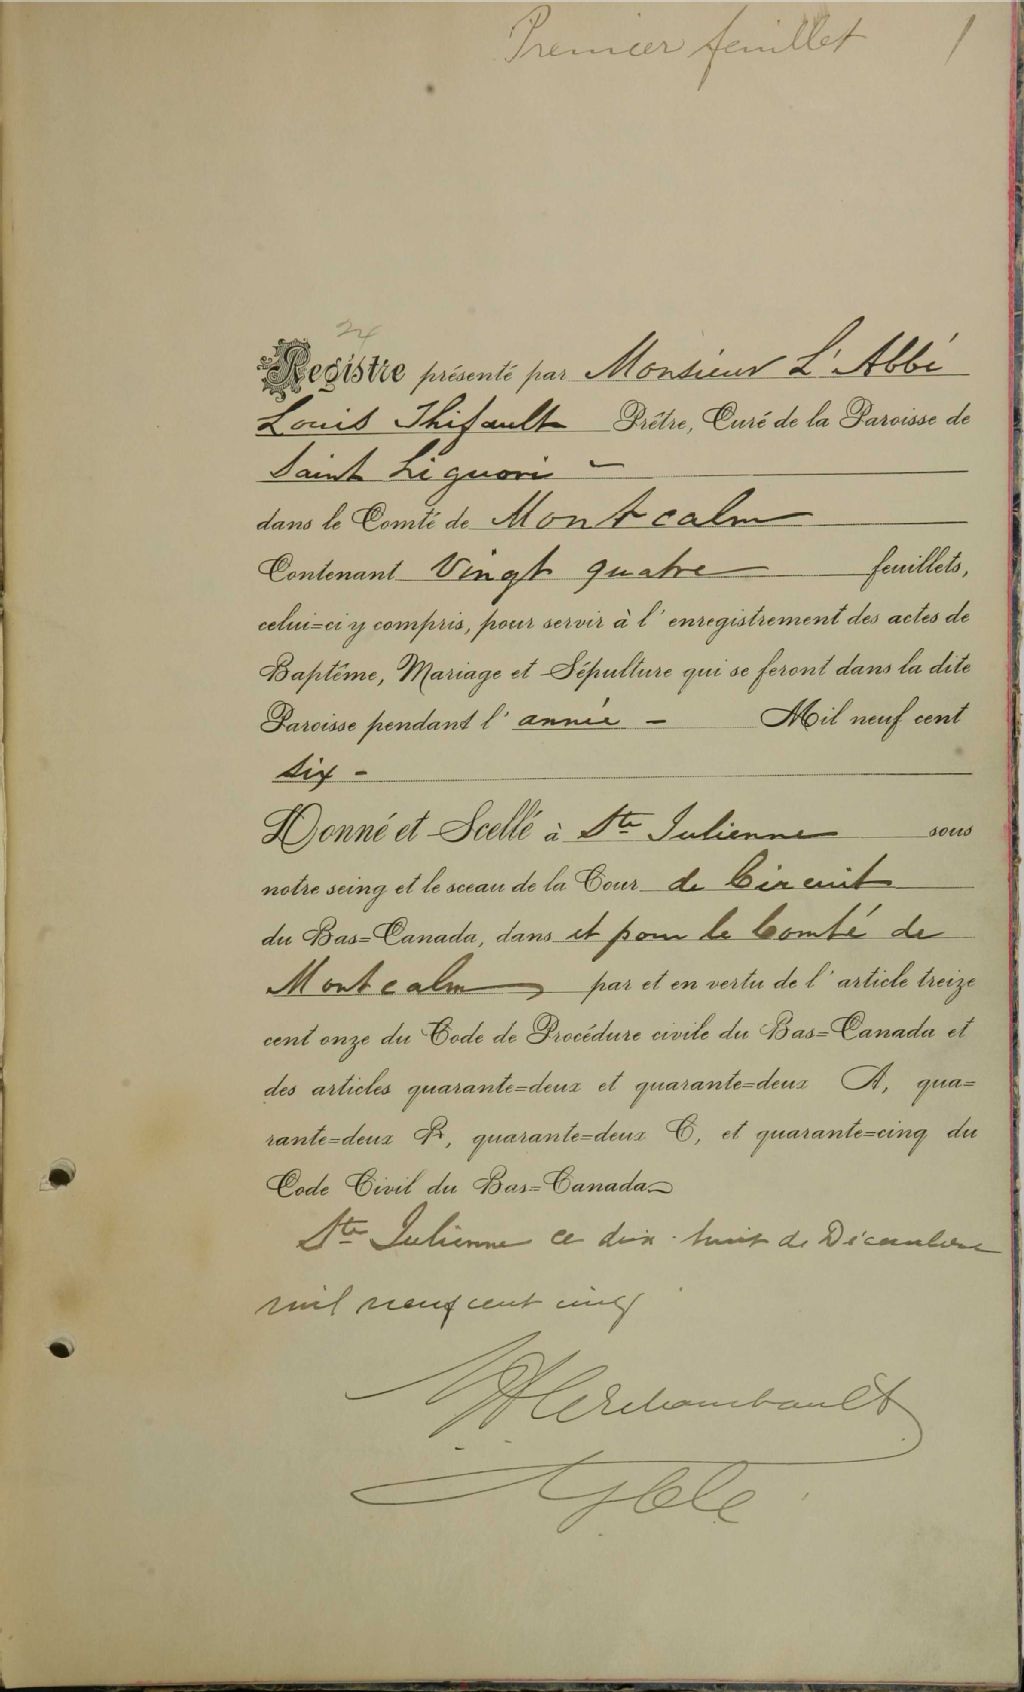 Premier feuillet 1
24
Registre présenté par Monsieur L'Abbé
Louis Thifault Prêtre, Curé de la Paroisse de
Saint Liguori -
dans le Comté de Montcalm
Contenant Vingt quatre feuillets,
celui=ci y compris, pour servir à l'enregistrement des actes de
Baptême, Mariage et Sépulture qui se feront dans la dite
Paroisse pendant l'année - Mil neuf cent
six -
Donné et Scellé à Ste Julienne sous
notre seing et le sceau de la Cour de Circuit
du Bas=Canada, dans et pour le Comté de
Montcalm par et en vertu de l'article treize
cent onze du Code de Procédure civile du Bas=Canada et
des articles quarante=deux et quarante=deux A, qua=
rante=deux B, quarante=deux C, et quarante=cinq du
Code Civil du Bas=Canada
Ste Julienne ce dix-huit de Décembre
mil neuf cent cinq
Archambault